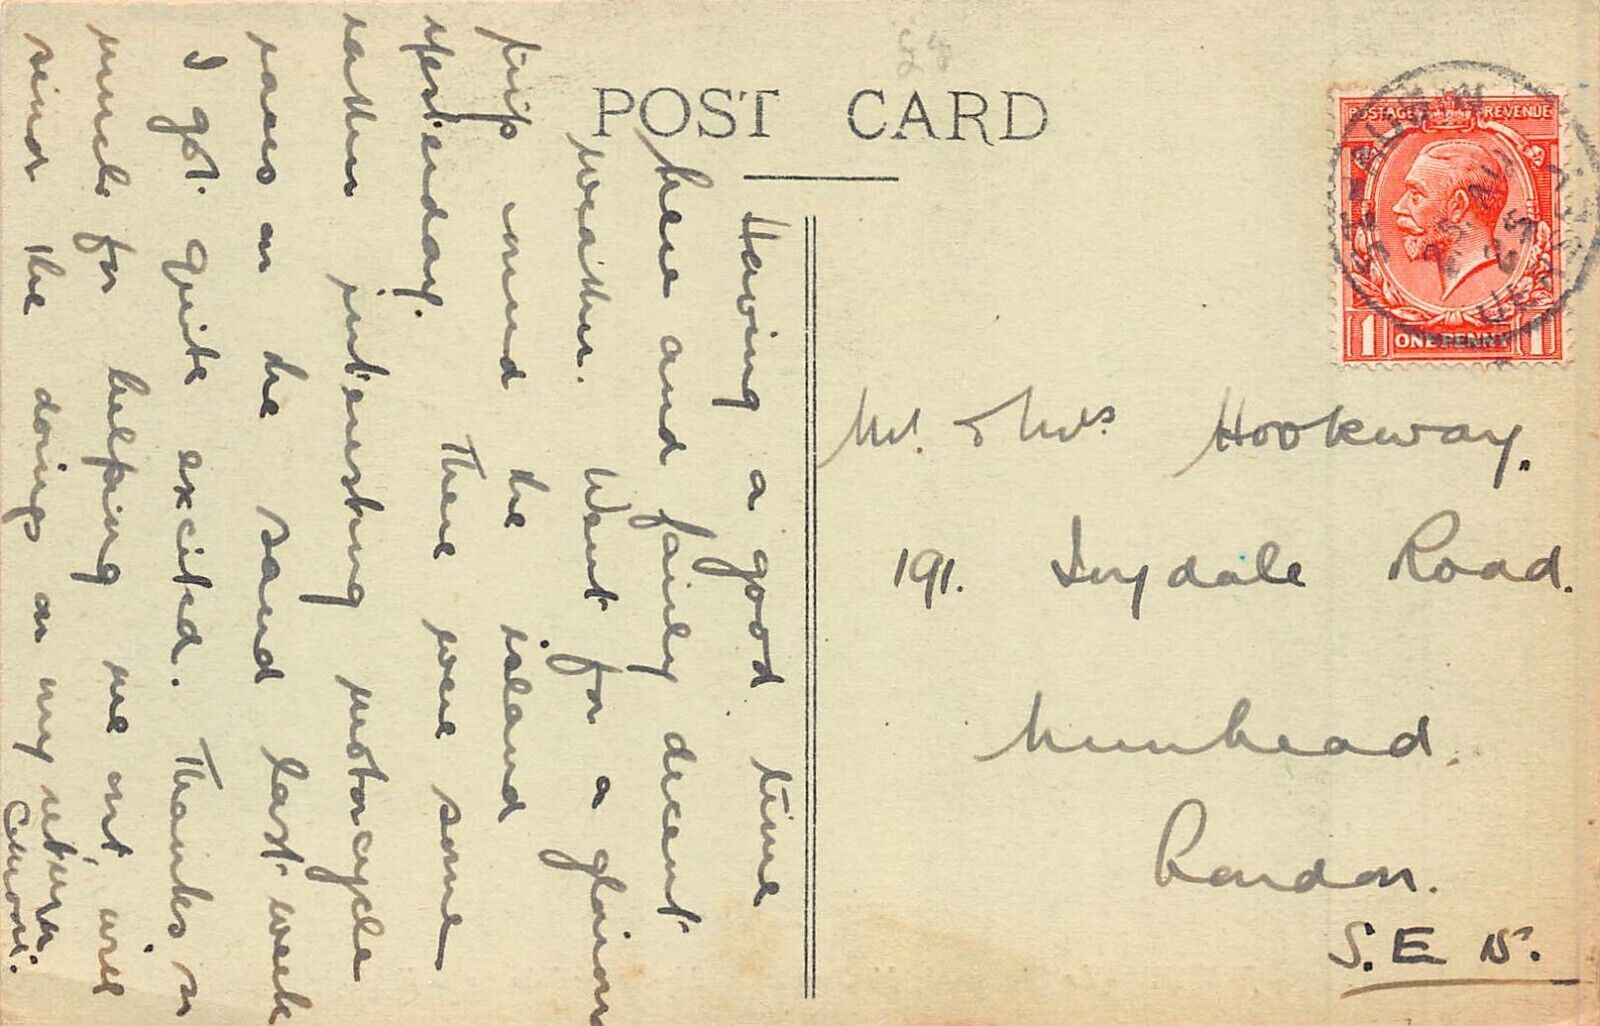 POST CARD
Having a good time
here and fairly decent
weather. Went for a glorious
trip round the island
yesterday. There were some
rather interesting motorcycle
races on the sand last week
I got quite excited. Thanks so
much for helping me out, will
send the doings on my return.
POSTAGE REVENUE
25 AU
25
JERSEY
1 ONE PENNY 1
Mr. & Mrs Hookway.
191. Ivydale Road.
Nunhead.
London.
S.E 15.